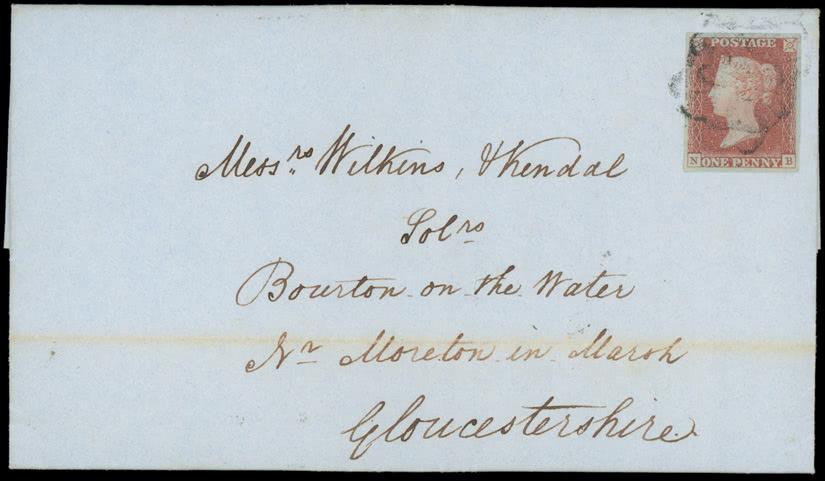 POSTAGE
N ONE PENNY B
Messrs. Wilkins, & Kendal
Solrs
Bourton on the Water
Nr Moreton in Marsh
Gloucestershire.